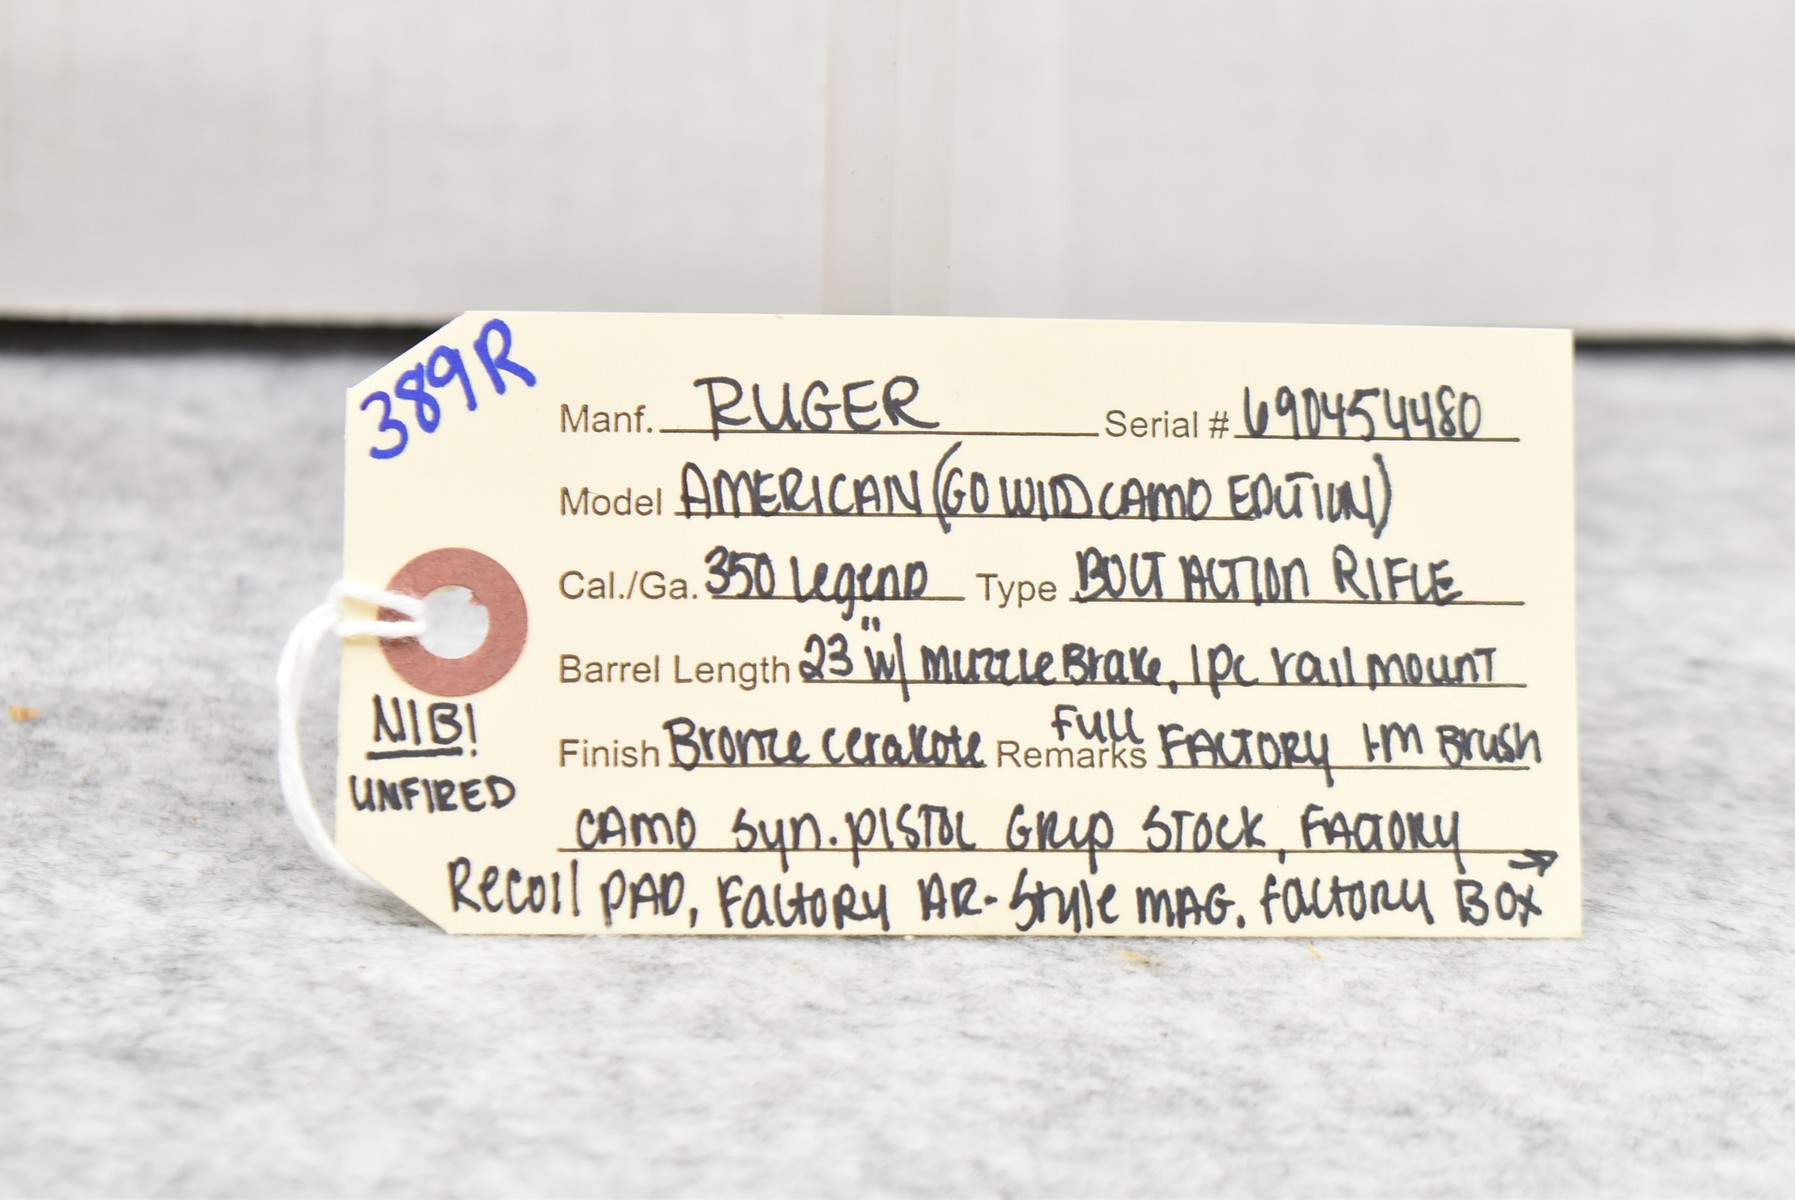 389R
Manf. RUGER Serial # 690454480
Model AMERICAN (GO WILD CAMO EDITION)
Cal./Ga. 350 Legend Type BOLT ACTION RIFLE
Barrel Length 23" w/ muzzle Brake, 1pc rail mount
Finish Bronze cerakote Remarks Full FACTORY I-M Brush
CAMO Syn. PISTOL GRIP STOCK, FACTORY
Recoil PAD, Factory AR-Style MAG. Factory BOX →
NIB!
UNFIRED